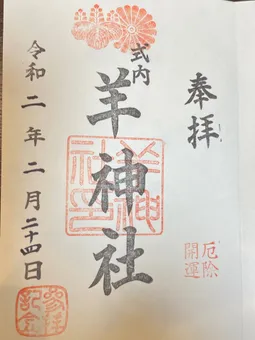 奉拝
厄除
開運
式内
羊神社
羊神
社印
令和二年二月二十四日
参拝
記念